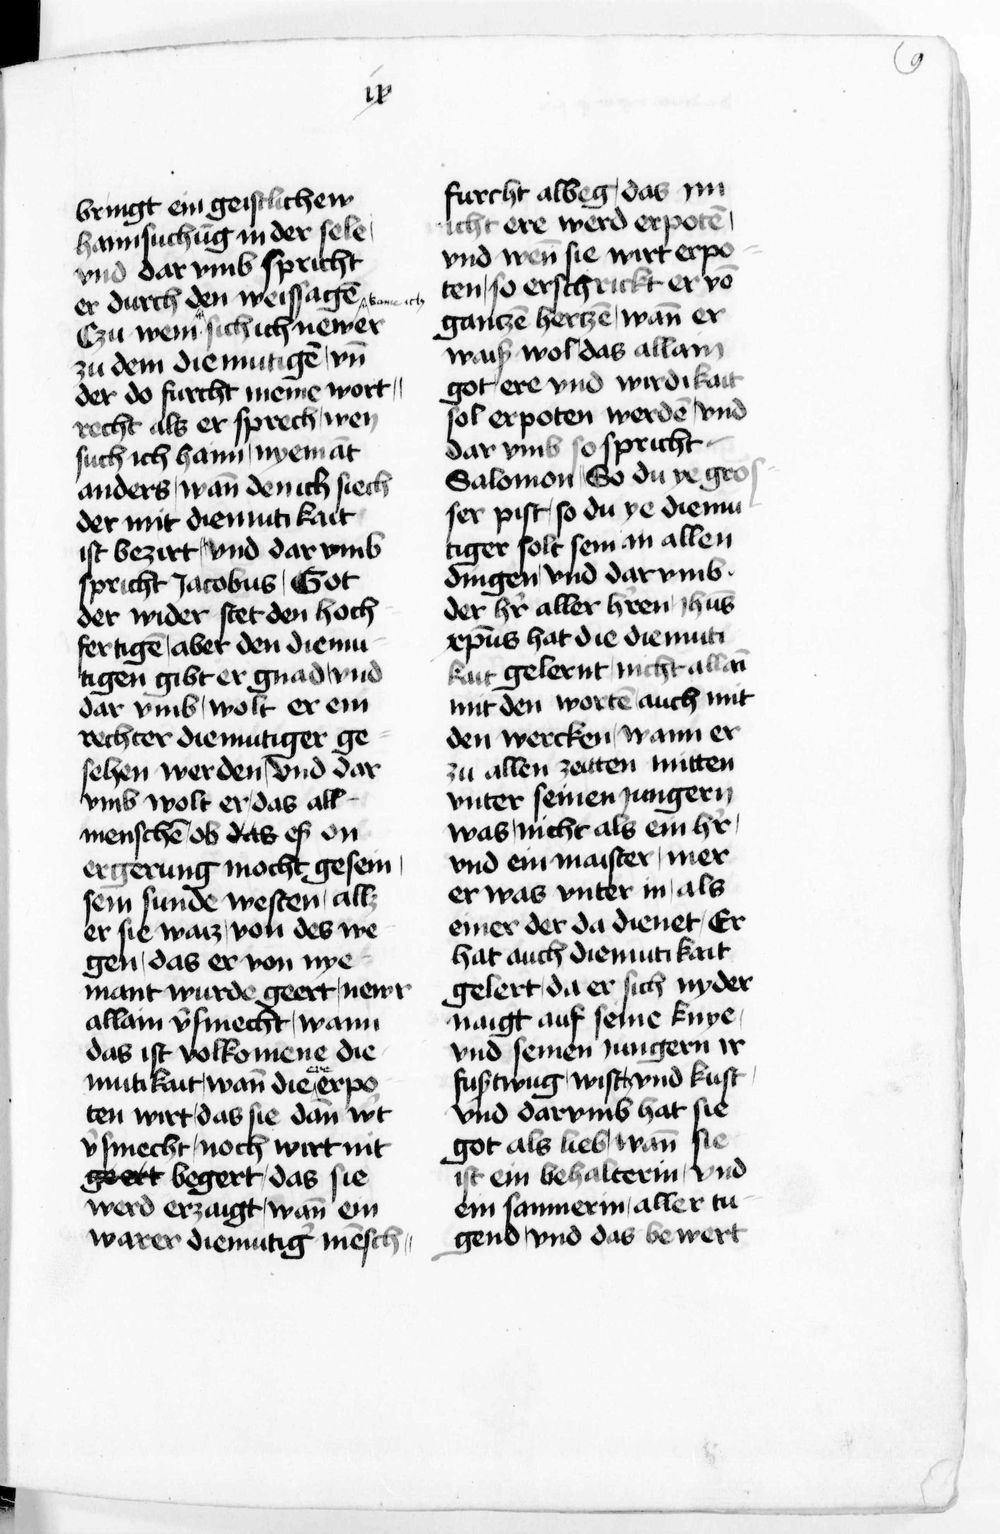 9
ix
bringt ein geistlichew
haimsuchūg in der sele /
vnd dar vmb spricht
er durch den weissagē
kome ich
Czu wem sich ich newer
zu dem diemutigē / vn̄
der do furcht meine wort //
recht als er sprech / wen
such ich haim / nyemāt
anders / wan̄ den ich siech
der mit diemutikait
ist bezirt / vnd dar vmb
spricht Jacobus / Got
der wider stet den hoch
fertigē / aber den diemu-
tigen gibt er gnad / vnd
dar vmb / wolt er ein
rechter diemutiger ge-
sehen werden / vnd dar
vmb wolt er / das all
menschē / ob das eß on
ergerung mocht gesein /
sein sunde westen / allz
er sie waiz / von des we
gen / das er von nye
mant wurde geert / newr
allain v̄smecht / wann
das ist volkomene die
mutikait / wan̄ die ere erpo
ten wirt / das sie dan̄ w't
v̄smecht / noch wirt nit
geert begert / das sie
werd erzaigt / wan̄ ein
warer diemutig' mēsch //
furcht albeg / das im
icht ere werd erpotē /
vnd wen̄ sie wirt erpo-
ten / so erschrickt er vō
gantzē hertzē / wan̄ er
waiß wol das allain
got / ere vnd wirdikait
sol erpoten werdē / vnd
dar vmb so spricht
Salomon / So du ye gros-
ser pist / so du ye diemu
tiger solt sein an allen
dingen / vnd dar vmb
der hr̄ aller hr̄en / jhūs
xp̄us hat die diemuti
kait gelernt / nicht allai̅
mit den wortē auch mit
den wercken / wann er
zu allen zeitten mitten
vnter seinen jungern
was / nicht als ein hr̄ /
vnd ein maister / mer
er was vnter in / als
einer der da dienet / Er
hat auch diemutikait
gelert / da er sich nyder
naigt auf seine knye /
vnd seinen jungern ir
fuß twug / wist / vnd kust /
vnd darvmb hat sie
got als lieb / wan̄ sie
ist ein behalterin / vnd
ein samnerin / aller tu-
gend / vnd das bewert